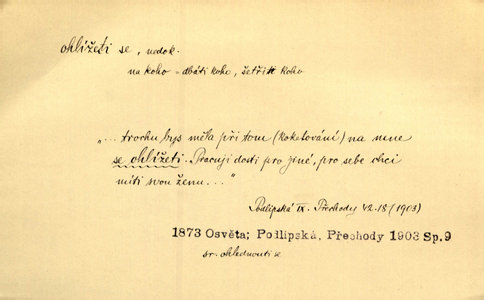 ohlížeti se, nedok.
na koho = dbáti koho, šetřiti koho
„... trochu bys měla při tom (koketování) na mne
se ohlížeti. Pracuji dosti pro jiné, pro sebe chci
míti svou ženu...“
Podlipská IX. Přechody 42.18 (1903)
1873 Osvěta; Podlipská, Přechody 1903 Sp.9
sr. ohlednouti se